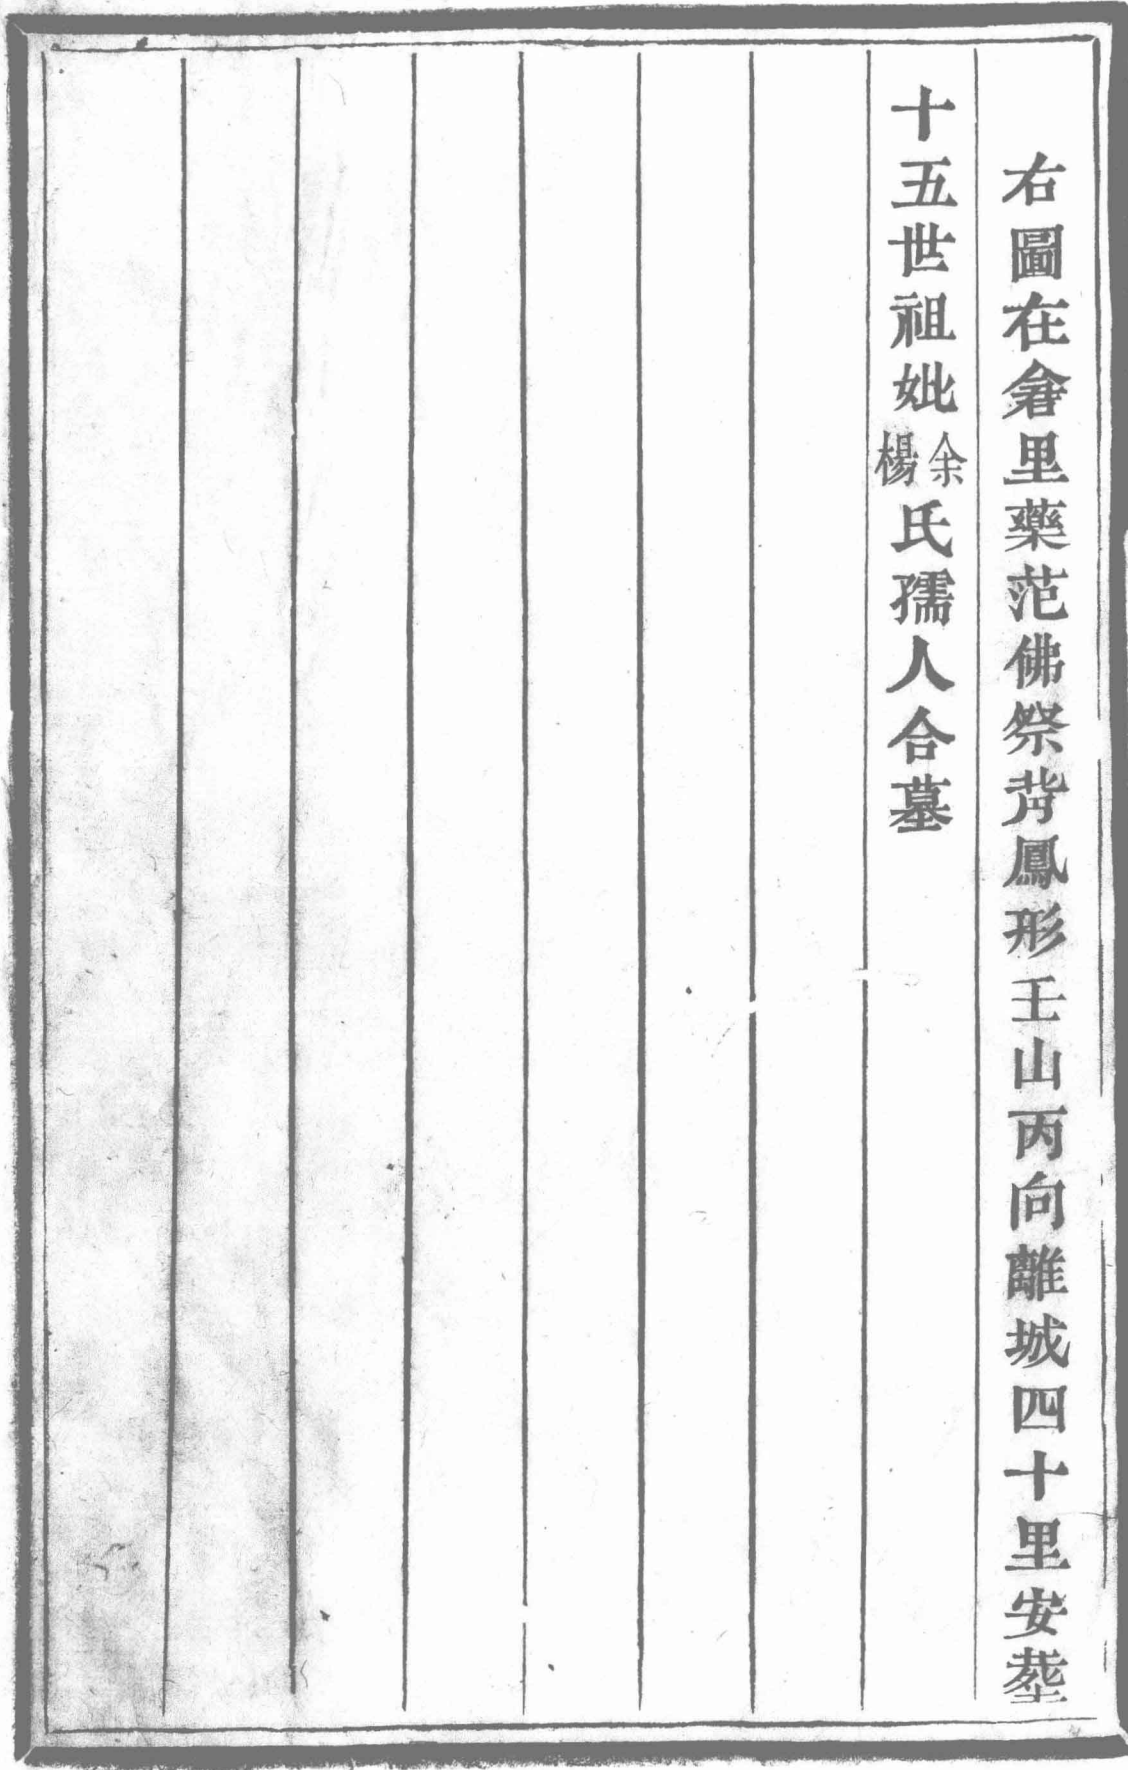 右圖在畲里藥范佛祭背鳳形壬山丙向離城四十里安塟
十五世祖妣余楊氏孺人合墓